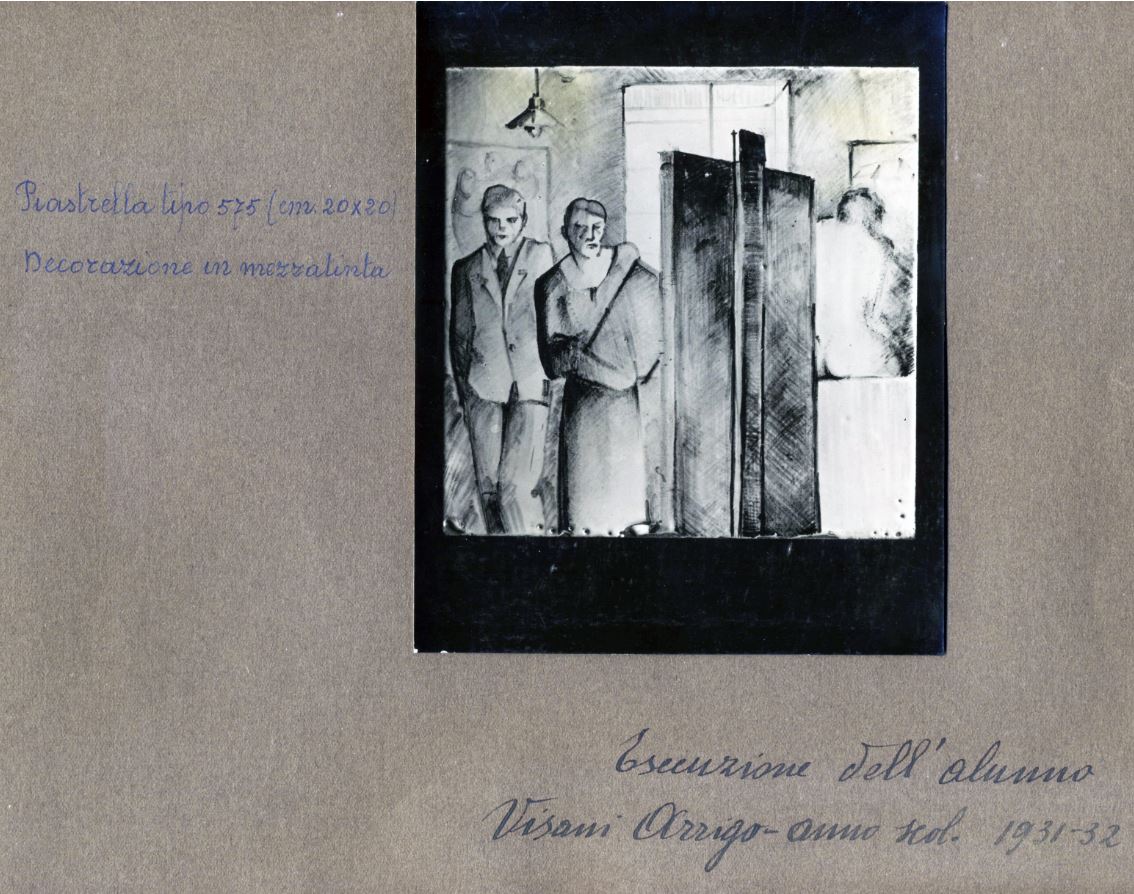 Piastrella tipo 575 (cm. 20x20)
Decorazione in mezzatinta
Esecuzione dell'alunno
Visani Arrigo - anno scol. 1931-32